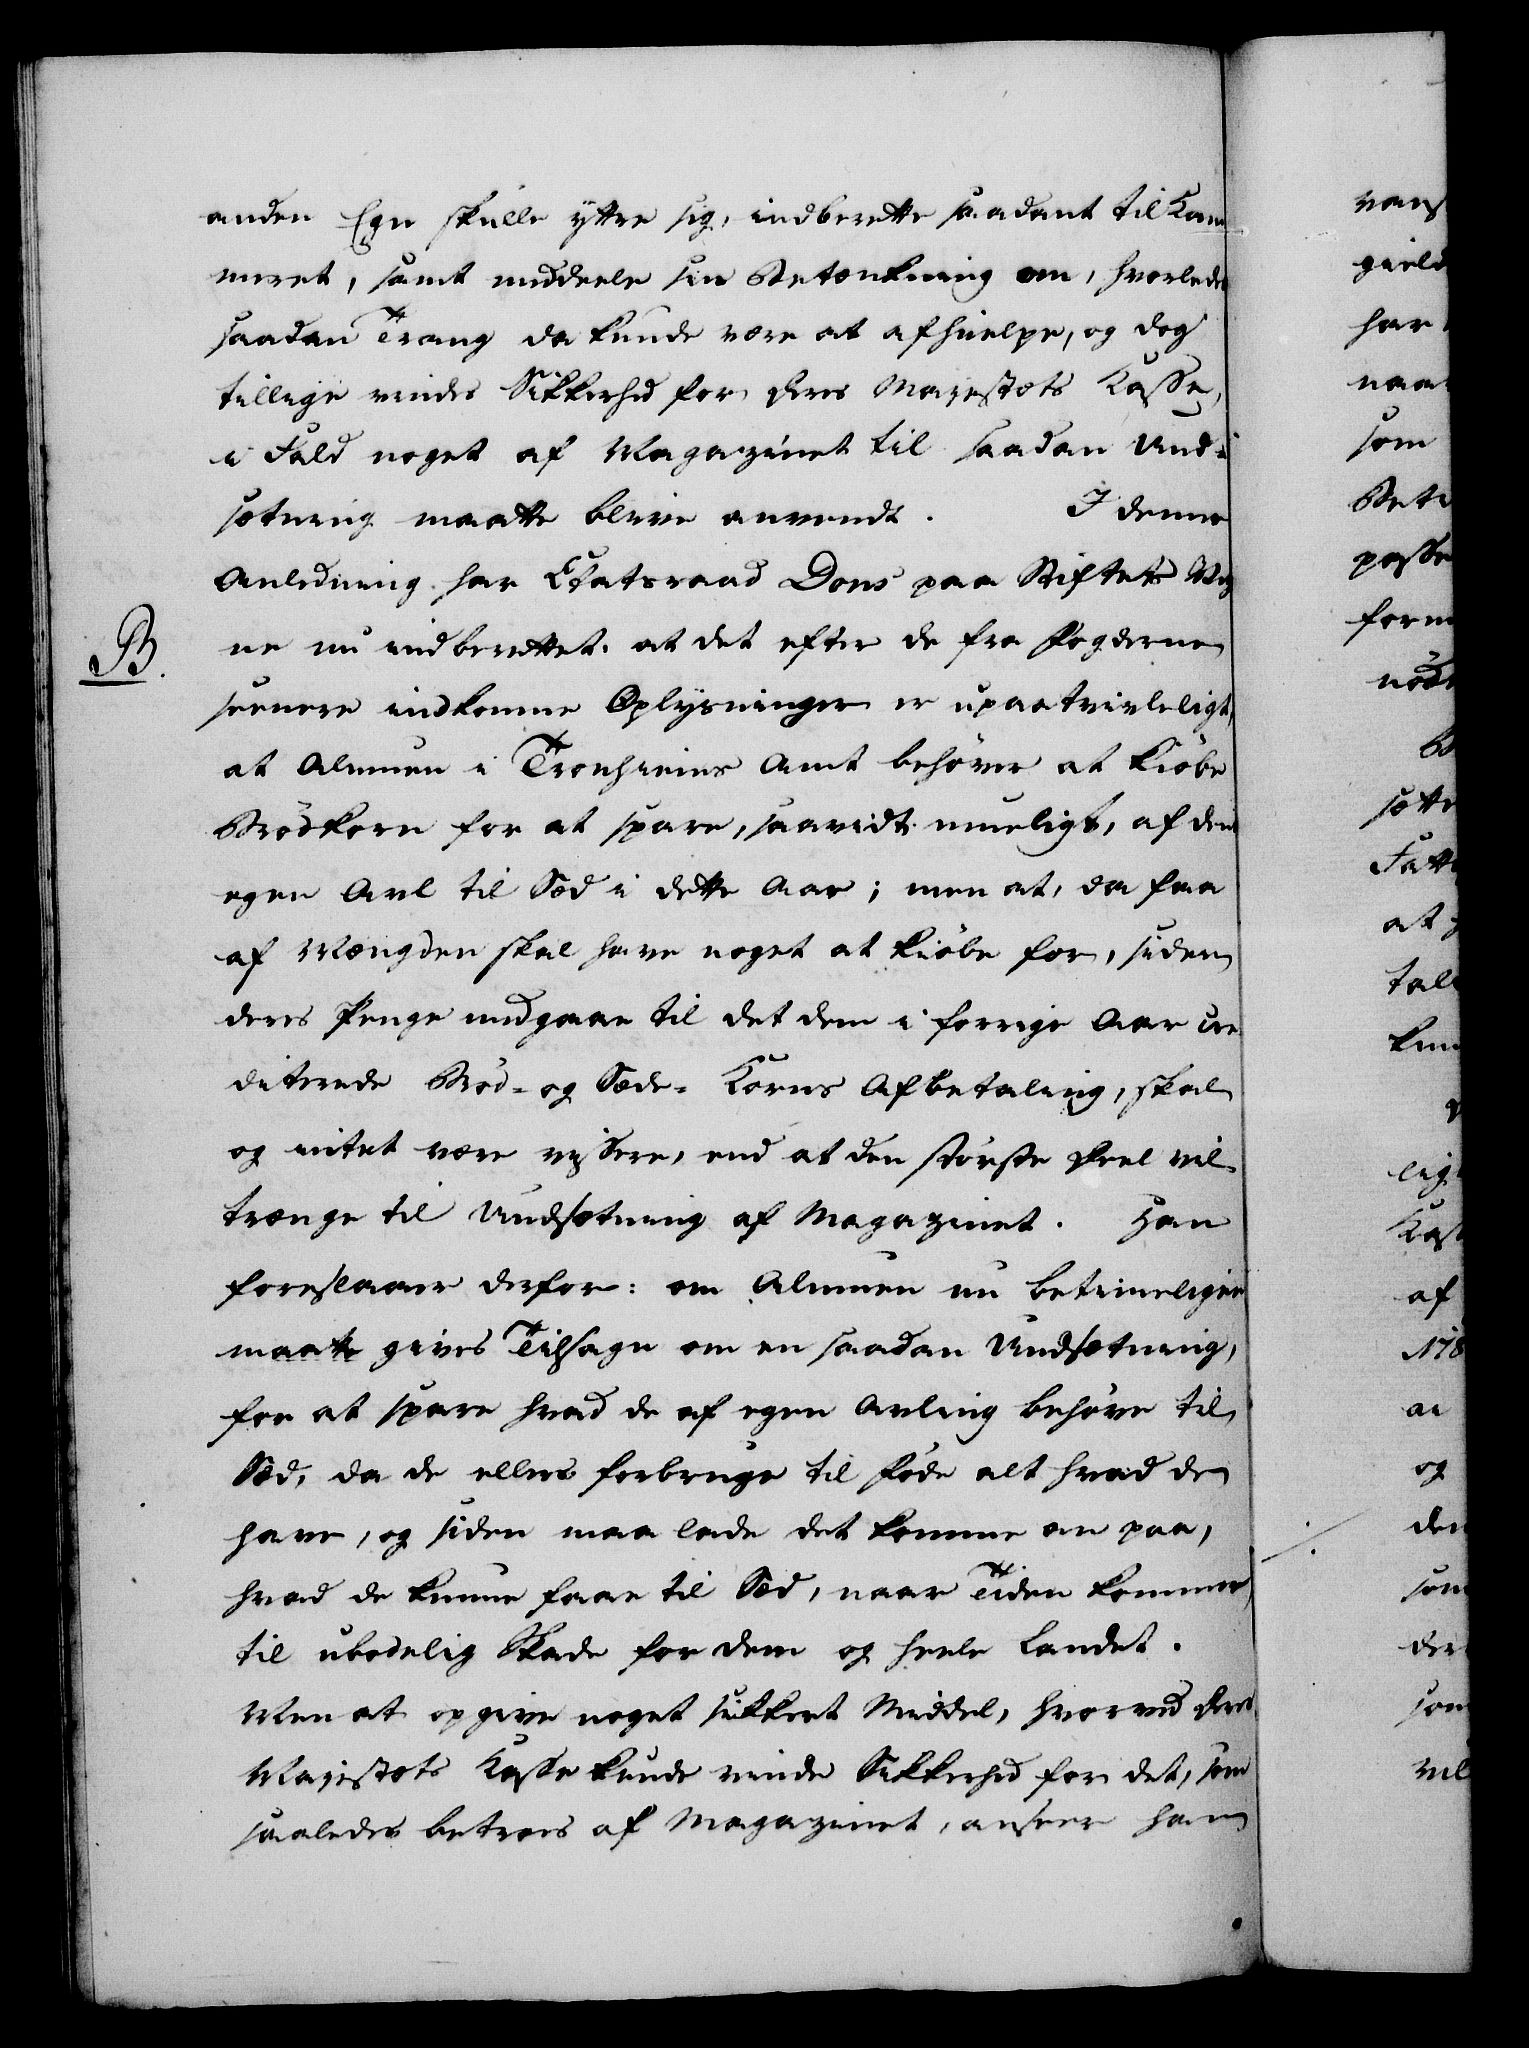 anden Egn skulle yttre sig, indberette saadant til Kam
meret, samt meddeele sin Betænkning om, hvorledes
saadan Trang da kunde være at afhielpe, og dog
tillige vindes Sikkerhed for Deres Majestæts Kasse,
i Fald noget af Magazinet til saadan Und-
sætning maatte blive anvendt. I denne
Anledning har Etatsraad Dons paa Stiftets Veg
B.
ne nu indberettet, at det efter de fra Fogderne
seenere indkomne Oplysninger er upaatvivleligt,
at Almuen i Tronhiems Amt behøver at kiøbe
Brødkorn for at spare, saavidt mueligt, af den
egen Avl til Sæd i dette Aar; men at, da faa
af Mængden skal have noget at kiøbe for, siden
deres Penge medgaae til det dem i forrige Aar cre
diterede Brød- og Sæde-Korns Afbetaling, skal
og intet være vissere, end at den største Deel vil
trænge til Undsætning af Magazinet. Han
foreslaaer derfor: om Almuen nu betimeligen
maatte gives Tilsagn om en saadan Undsætning,
for at spare hvad de af egen Avling behøve til
Sæd, da de ellers forbruge til Føde alt hvad de
have, og siden maa lade det komme an paa,
hvad de kunne faae til Sæd, naar Tiden kommer,
til ubodelig Skade for dem og heele Landet.
Men at opgive noget sikkert Middel, hvorved Deres
Majestæts Kasse kunde vinde Sikkerhed for det, som
saaledes betroes af Magazinet, anseer han